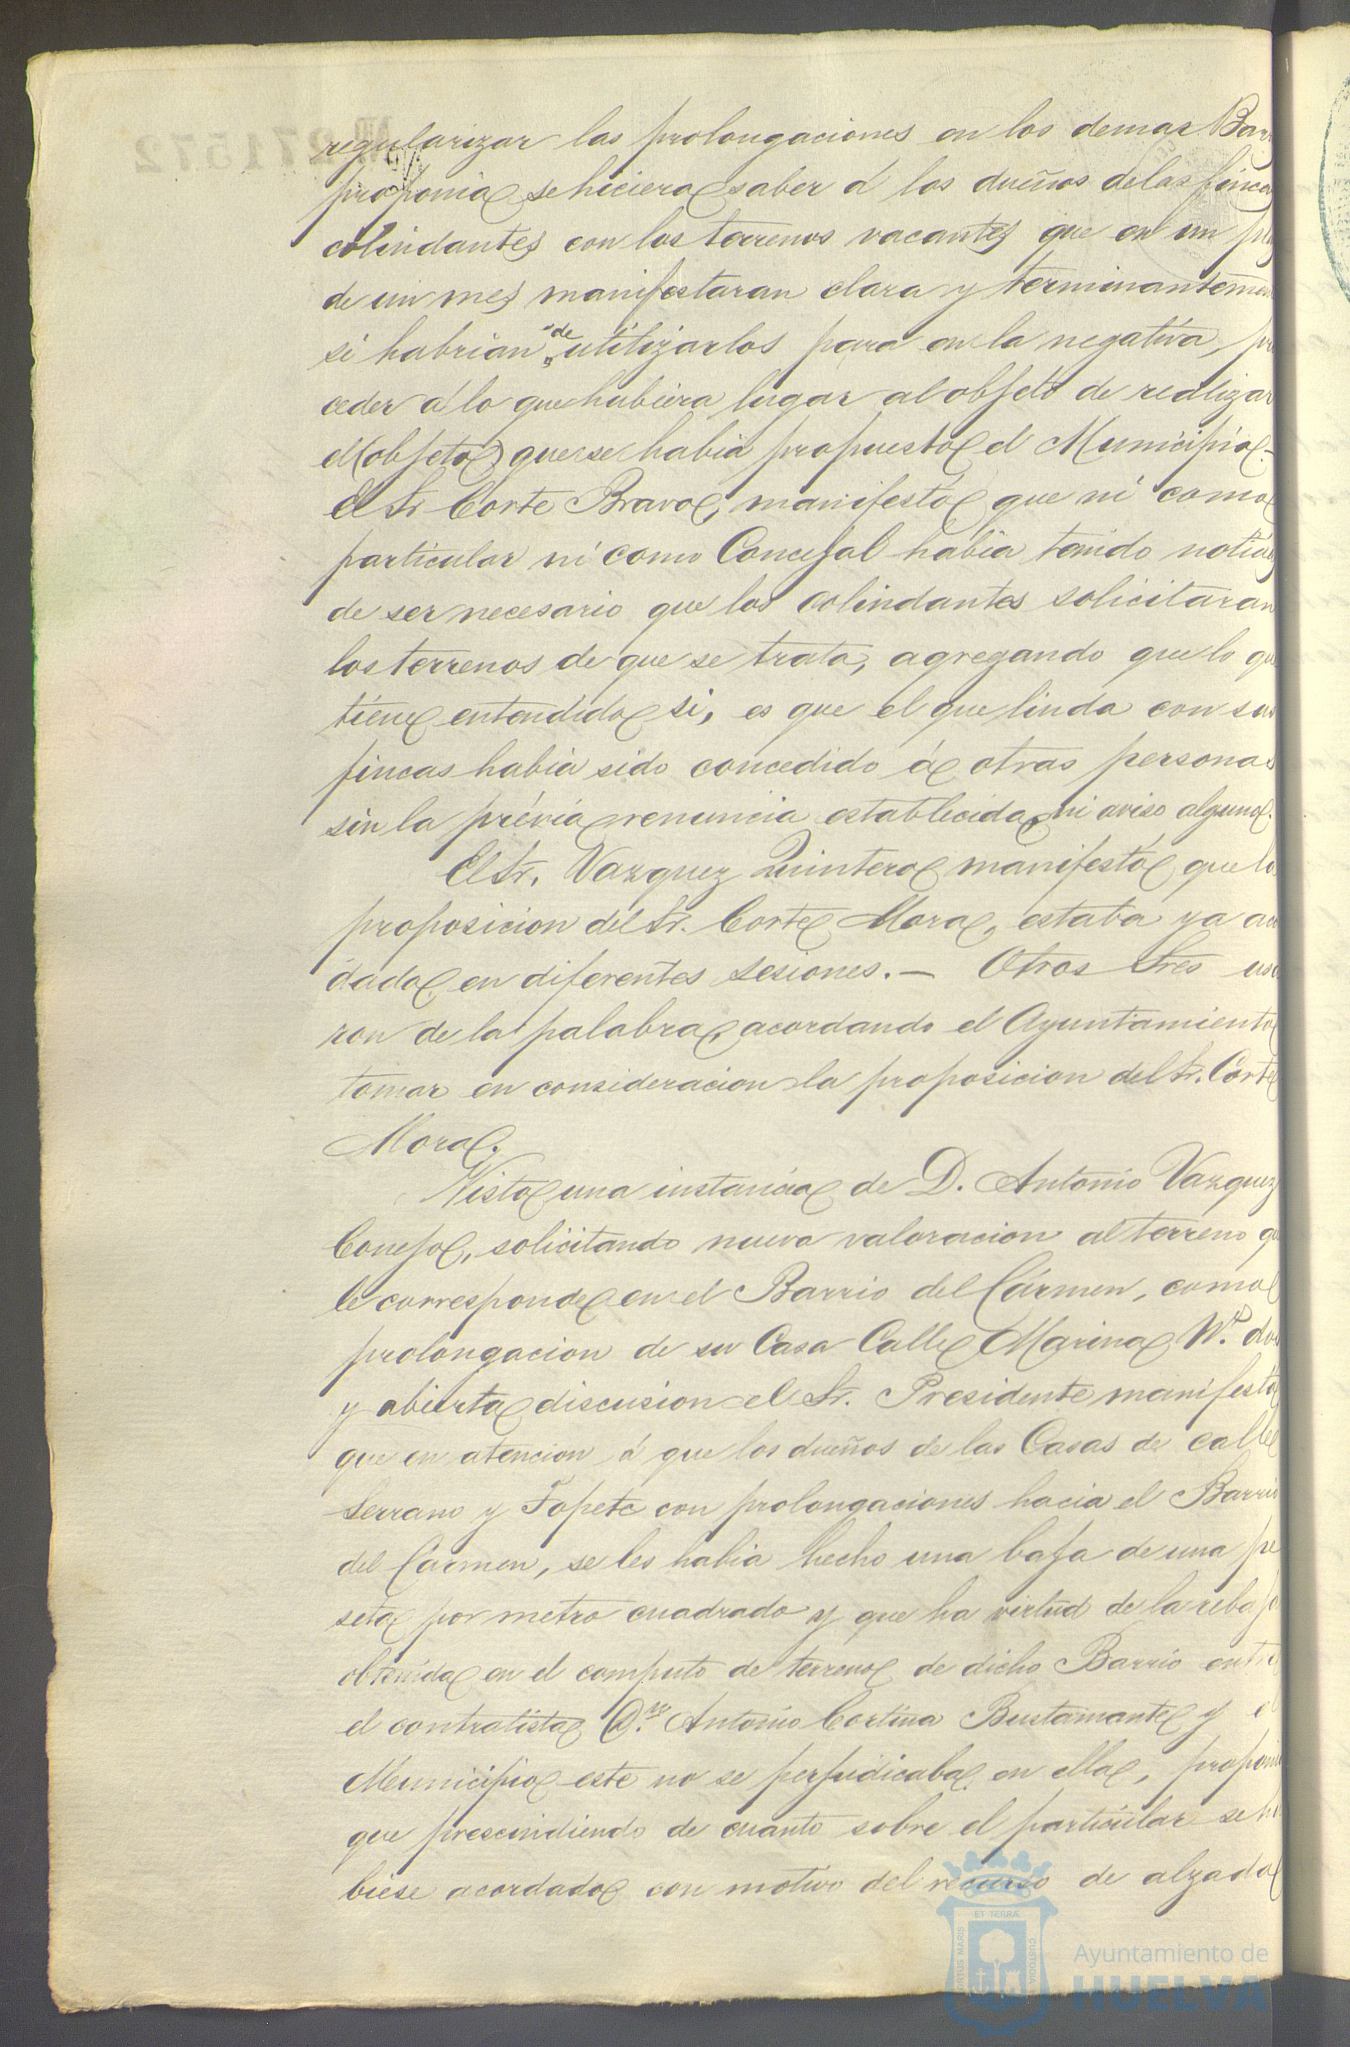 regularizar las prolongaciones en los demas Barr
proponia se hiciera saber á los dueños de las fincas
colindantes con los terrenos vacantes que en un
de un mes manifestaran clara y terminantemen
si habrian de utilizarlos para en la negativa, pro
ceder á lo que hubiera lugar al objeto de realizar
el (objeto) que se habia propuesto el Municipio.-
El Sr Corte Bravo, manifestó que ni como
particular ni como Concejal habia tenido noticias
de ser necesario que los colindantes solicitaran
los terrenos de que se trata, agregando que lo que
tiene entendido si, es que el que linda con sus
fincas habia sido concedido á otras personas
sin la prévia renuncia establecida, ni aviso alguno.
El Sr. Vazquez Quintero manifestó que la
proposicion del Sr. Corte Mora, estaba ya acor
dada en diferentes sesiones.— Otros Sres usa
ron de la palabra, acordando el Ayuntamiento
tomar en consideracion la proposicion del Sr. Corte
Mora.
Vista una instancia de D. Antonio Vazquez
Conejo, solicitando nueva valoracion al terreno que
le corresponde en el Barrio del Cármen, como
prolongacion de su Casa Calle Marina N.º dos
y abierta discusion el Sr. Presidente manifestó
que en atencion á que los dueños de las Casas de calle
Serrano y Topete con prolongaciones hacia el Barrio
del Cármen, se les habia hecho una baja de una pe
seta por metro cuadrado y que ha virtud de la rebaja
obtenida en el computo de terreno de dicho Barrio entre
el contratista D.n Antonio Cortina Bustamante y el
Municipio este no se perjudicaba en ella, proponia
que prescindiendo de cuanto sobre el particular se hu
biese acordado con motivo del recurso de alzada
ET TERRÆ
PORTUS MARIS
CUSTODIA
Ayuntamiento de
HUELVA
271572